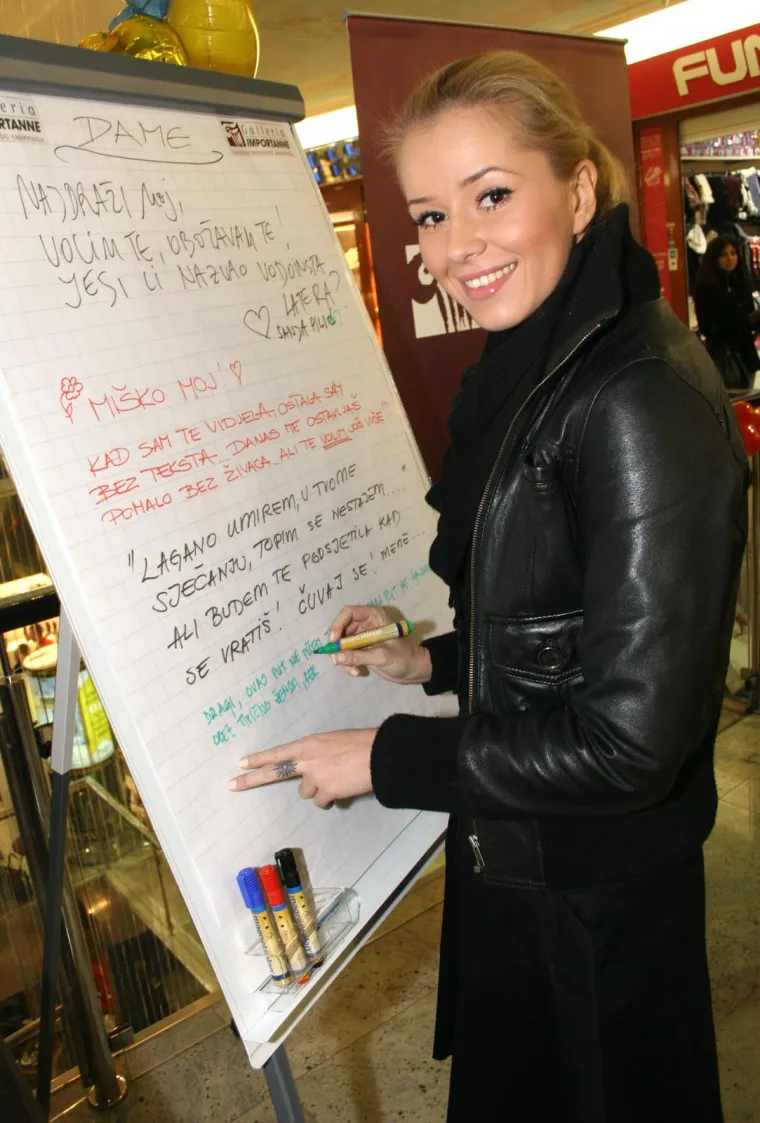 Galleria
IMPORTANNE
DAME
NAJDRAŽI MOJ,
VOLIM TE, OBOŽAVAM TE!
JESI LI NAZVAO VODOINSTA
LATERA?
MIŠKO MOJ!
KAD SAM TE VIDJELA, OSTALA SAM
BEZ TEKSTA... DANAS ME OSTAVLJAŠ
POMALO BEZ ŽIVACA... ALI TE VOLIM JOŠ VIŠE!!
"LAGANO UMIREM, U TVOME
SJEĆANJU, TOPIM SE NESTAJEM..."
ALI BUDEM TE PODSJETILA KAD
SE VRATIŠ! ČUVAJ SE! MENE...
DRAGI, OVAJ PUT NE
FUN